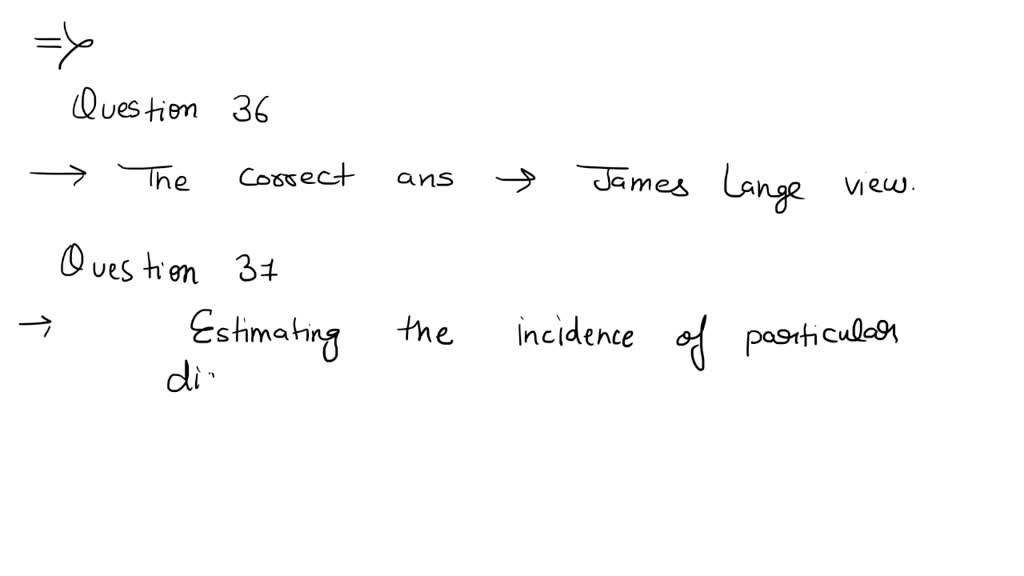 =>
Question 36
→ The correct ans → James Lange view.
Question 37
→ Estimating the incidence of particular
di